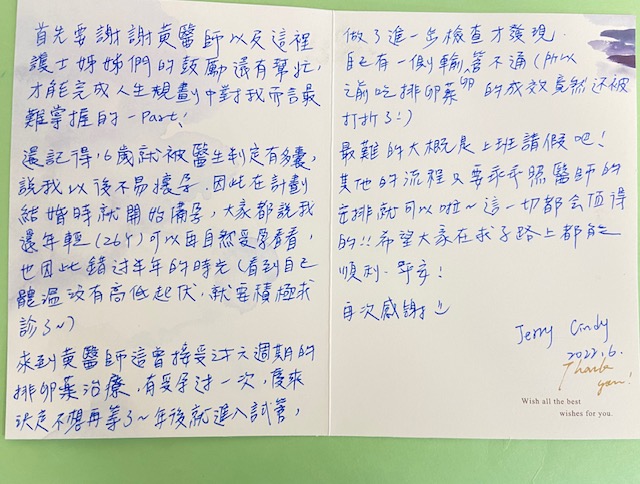 首先要謝謝黃醫師以及這裡
護士姊姊們的鼓勵還有幫忙,
才能完成人生規劃中對我而言最
難掌握的一Part!
還記得16歲就被醫生判定有多囊,
說我以後不易懷孕.因此在計劃
結婚時就開始備孕,大家都說我
還年輕(26y)可以再自然受孕看看,
也因此錯過半年的時光(看到自己
體溫沒有高低起伏.就要積極求
診了~)
來到黃醫師這曾接受過六週期的
排卵藥治療,有受孕過一次,後來
決定不想再等了~年後就進入試管,
做了進一步檢查才發現.
自己有一側輸卵管不通(所以
之前吃排卵藥 的成效竟然還被
打折了!)
最難的大概是上班請假吧!
其他的流程只要乖乖照醫師的
安排就可以啦~這一切都會值得
的!!希望大家在求子路上都能
順利.平安!
再次感謝
Jerry Cindy
2022.6.
Thank
you!
Wish all the best
wishes for you.